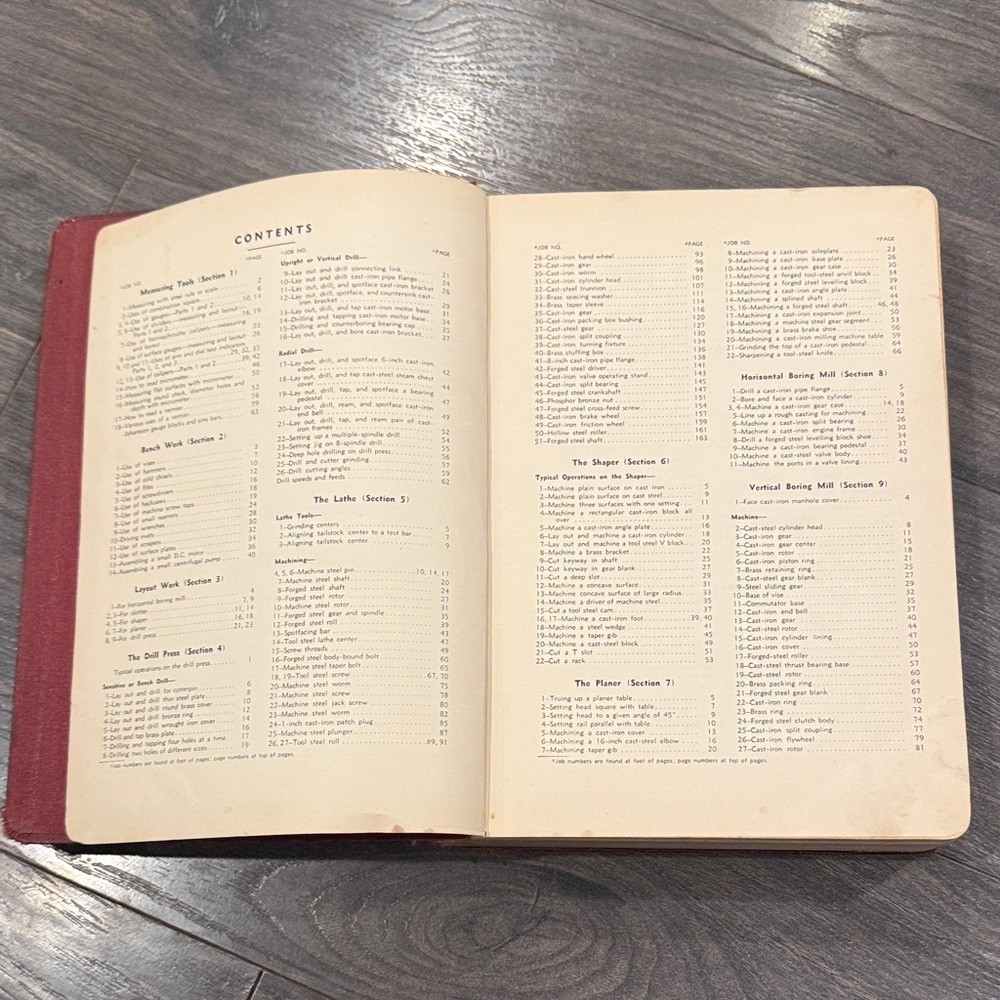 CONTENTS
*JOB NO. *PAGE
Measuring Tools (Section 1)
1–Measuring with steel rule in scale 2
2–Use of combination square 6
3, 4–Use of gauges—Parts 1 and 2 10, 14
5, 6–Use of dividers—measuring and layout
Parts 1 and 2 16, 19
7–Use of hermaphrodite calipers—measuring
and layout 23
8–Use of surface gauges—measuring and layout 26
9, 10 and 11–Uses of arm and dial test indicators,
Parts 1, 2, and 3 29, 32, 35
12, 13–Use of calipers—Parts 1 and 2 39, 42
14–How to read micrometer 46
15–Measuring flat surfaces with micrometer 50
16–Measuring round stock, diameter, holes and
depth with micrometer 52
17–How to read a vernier 56
18–Various uses of a vernier 59
Johansson gauge blocks and sine bars 63
Bench Work (Section 2)
1–Use of vises 3
2–Use of hammers 7
3–Use of cold chisels 10
4–Use of files 12
5–Use of screwdrivers 16
6–Use of hacksaws 18
7–Use of machine screw taps 19
8–Use of small reamers 24
9–Use of wrenches 28
10–Driving rivets 30
11–Use of scrapers 32
12–Use of surface plates 34
13–Assembling a small D.C. motor 36
14–Assembling a small centrifugal pump 40
Layout Work (Section 3)
1–For horizontal boring mill 4
2, 3–For slotter 7, 9
4, 5–For shaper 11, 14
6, 7–For planer 16, 18
8, 9–For drill press 21, 23
The Drill Press (Section 4)
Typical operations on the drill press 1
Sensitive or Bench Drill—
1–Lay out and drill for cotterpin 6
2–Lay out and drill thin steel plate 8
3–Lay out and drill round brass cover 10
4–Lay out and drill bronze ring 12
5–Lay out and drill wrought iron cover 14
6–Drill and tap brass plate 16
7–Drilling and tapping four holes at a time 17
8–Drilling two holes of different sizes 19
*JOB NO. *PAGE
Upright or Vertical Drill—
9–Lay out and drill connecting link 21
10–Lay out and drill cast-iron pipe flange 24
11–Lay out, drill, and spotface cast-iron bracket 26
12–Lay out, drill, spotface, and countersink cast-
iron bracket 29
13–Lay out, drill, and tap cast-iron motor base 31
14–Drilling and tapping cast-iron motor base 34
15–Drilling and counterboring bearing cap 35
16–Lay out, drill, and bore cast-iron bracket 37
Radial Drill—
17–Lay out, drill, and spotface 6-inch cast-iron
elbow 42
18–Lay out, drill, and tap cast-steel steam chest
cover 44
19–Lay out, drill, tap, and spotface a bearing
pedestal 47
20–Lay out, drill, ream, and spotface cast-iron
end bell 49
21–Lay out, drill, tap, and ream pair of cast-
iron frames 52
22–Setting up a multiple-spindle drill 54
23–Setting jig on 8-spindle drill 55
24–Deep hole drilling on drill press 56
25–Drill and cutter grinding 57
26–Drill cutting angles 59
Drill speeds and feeds 62
The Lathe (Section 5)
Lathe Tools—
1–Grinding centers 5
2–Aligning tailstock center to a test bar 7
3–Aligning tailstock center 9
Machining—
4, 5, 6–Machine steel pin 10, 14, 17
7–Machine steel shaft 20
8–Forged steel shaft 24
9–Forged steel rotor 27
10–Machine steel rotor 31
11–Forged steel gear and spindle 35
12–Forged steel roll 39
13–Spotfacing bar 43
14–Tool steel lathe center 47
15–Screw threads 49
16–Forged steel body-bound bolt 60
17–Machine steel taper bolt 65
18, 19–Tool steel screw 67, 70
20–Machine steel worm 75
21–Machine steel screw 78
22–Machine steel jack screw 80
23–Machine steel worm 82
24–1-inch cast-iron patch plug 85
25–Machine steel plunger 87
26, 27–Tool steel roll 89, 91
*Job numbers are found at foot of pages; page numbers at top of pages.
*JOB NO. *PAGE
28–Cast-iron hand wheel 93
29–Cast-iron gear 96
30–Cast-iron worm 98
31–Cast-iron cylinder head 101
32–Cast-steel trunnion 107
33–Brass spacing washer 111
34–Brass taper sleeve 114
35–Cast-iron gear 116
36–Cast-iron packing box bushing 120
37–Cast-steel gear 127
38–Cast-iron split coupling 130
39–Cast-iron turning fixture 134
40–Brass stuffing box 136
41–8-inch cast-iron pipe flange 138
42–Forged steel driver 141
43–Cast-iron valve operating stand 143
44–Cast-iron split bearing 145
45–Forged steel crankshaft 147
46–Phosphor bronze nut 151
47–Forged steel cross-feed screw 154
48–Cast-iron brake wheel 157
49–Cast-iron friction wheel 159
50–Hollow steel roller 161
51–Forged steel shaft 163
The Shaper (Section 6)
Typical Operations on the Shaper—
1–Machine plain surface on cast iron 5
2–Machine plain surface on cast steel 9
3–Machine three surfaces with one setting 11
4–Machine a rectangular cast-iron block all
over 13
5–Machine a cast-iron angle plate 16
6–Lay out and machine a cast-iron cylinder 18
7–Lay out and machine a tool steel V block 20
8–Machine a brass bracket 22
9–Cut keyway in shaft 25
10–Cut keyway in gear blank 27
11–Cut a deep slot 29
12–Machine a concave surface 31
13–Machine concave surface of large radius 33
14–Machine a driver of machine steel 35
15–Cut a tool steel cam 37
16, 17–Machine a cast-iron foot 39, 40
18–Machine a steel wedge 41
19–Machine a taper gib 45
20–Machine a cast-steel block 49
21–Cut a T slot 51
22–Cut a rack 53
The Planer (Section 7)
1–Truing up a planer table 5
2–Setting head square with table 7
3–Setting head to a given angle of 45° 9
4–Setting rail parallel with table 10
5–Machining a cast-iron cover 13
6–Machining a 16-inch cast-steel elbow 16
7–Machining taper gib 20
*JOB NO. *PAGE
8–Machining a cast-iron soleplate 23
9–Machining a cast-iron base plate 26
10–Machining a cast-iron gear case 30
11–Machining a forged tool-steel anvil block 34
12–Machining a forged steel levelling block 39
13–Machining a cast-iron angle plate 41
14–Machining a splined shaft 44
15, 16–Machining a forged steel shaft 46, 48
17–Machining a cast-iron expansion joint 50
18–Machining a machine steel gear segment 53
19–Machining a brass brake shoe 56
20–Machining a cast-iron milling machine table 59
21–Grinding the top of a cast-iron pedestal 64
22–Sharpening a tool-steel knife 66
Horizontal Boring Mill (Section 8)
1–Drill a cast-iron pipe flange 5
2–Bore and face a cast-iron cylinder 9
3, 4–Machine a cast-iron gear case 14, 18
5–Line up a rough casting for machining 22
6–Machine a cast-iron split bearing 26
7–Machine a cast-iron engine frame 30
8–Drill a forged steel levelling block shoe 34
9–Machine a cast-iron bearing pedestal 37
10–Machine a cast-steel valve body 40
11–Machine the ports in a valve lining 43
Vertical Boring Mill (Section 9)
1–Face cast-iron manhole cover 4
Machine—
2–Cast-steel cylinder head 8
3–Cast-iron gear 11
4–Cast-iron gear center 15
5–Cast-iron rotor 18
6–Cast-iron piston ring 21
7–Brass retaining ring 25
8–Cast-steel gear blank 27
9–Steel sliding gear 29
10–Base of vise 32
11–Commutator base 35
12–Cast-iron end bell 37
13–Cast-iron gear 40
14–Cast-steel rotor 44
15–Cast-iron cylinder lining 47
16–Cast-iron cover 50
17–Forged-steel roller 53
18–Cast-steel thrust bearing base 57
19–Cast-steel rotor 60
20–Brass packing ring 64
21–Forged steel gear blank 67
22–Cast-iron ring 70
23–Brass ring 72
24–Forged steel clutch body 74
25–Cast-iron split coupling 77
26–Cast-iron flywheel 79
27–Cast-iron rotor 81
*Job numbers are found at foot of pages; page numbers at top of pages.